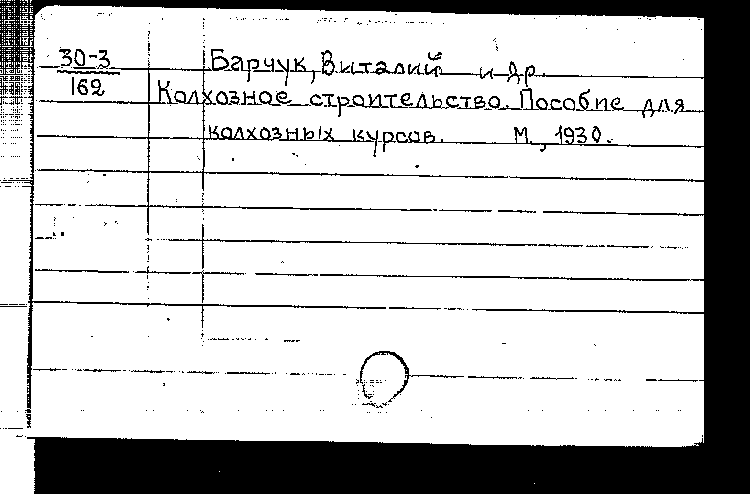 30-3
162
Барчук, Виталий и др.
Колхозное строительство. Пособие для
колхозных курсов. М., 1930.